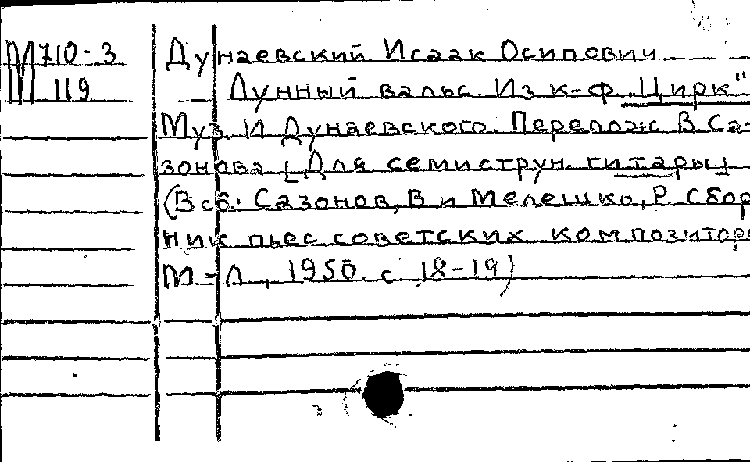 М710-3 Дунаевский Исаак Осипович
III 119 Лунный вальс Из к-ф „Цирк"
Муз. И Дунаевского. Перелож В Са-
зонова [Для семиструн. гитары]
(В сб.: Сазонов, В и Мелешко, Р Сбор
ник пьес советских композиторо
М-Л, 1950. с 18-19)